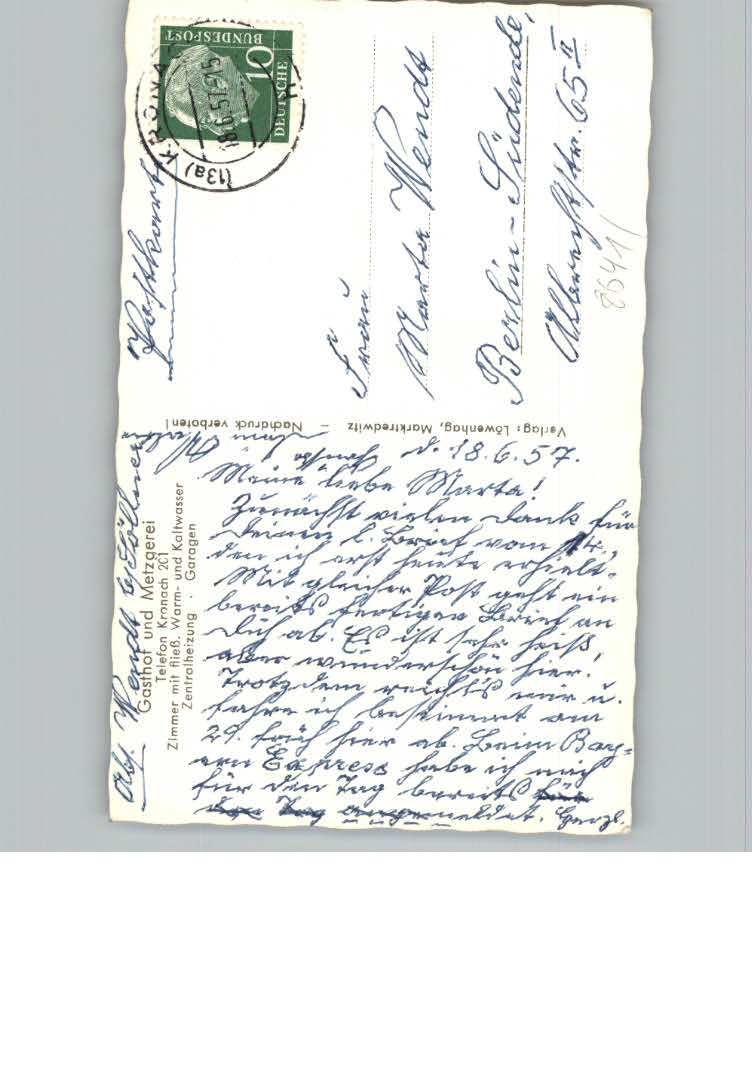 Abs. Wendt b/ Söllner
Gasthof und Metzgerei
Telefon Kronach 201
Zimmer mit fließ. Warm- und Kaltwasser
Zentralheizung · Garagen
d. 18.6.57.
Meine liebe Marta!
Zunächst vielen Dank für
Deinen l. Brief vom 14.,
den ich erst heute erhielt.
Mit gleicher Post geht ein
bereits fertiger Brief an
Dich ab. Es ist sehr heiß,
aber wunderschön hier!
Trotzdem reicht's mir u.
fahre ich bestimmt am
29. früh hier ab. Beim Bay-
ern Express habe ich mich
für den Tag bereits für
den Tag angemeldet. Herzl.
Verlag: Löwenhag, Marktredwitz – Nachdruck verboten!
Postkarte
DEUTSCHE
BUNDESPOST
10
(13a) KRONA
18.6.57.-15
Frau
Marta Wendt
Berlin-Südende,
Albrechtstr. 65 II
8641/